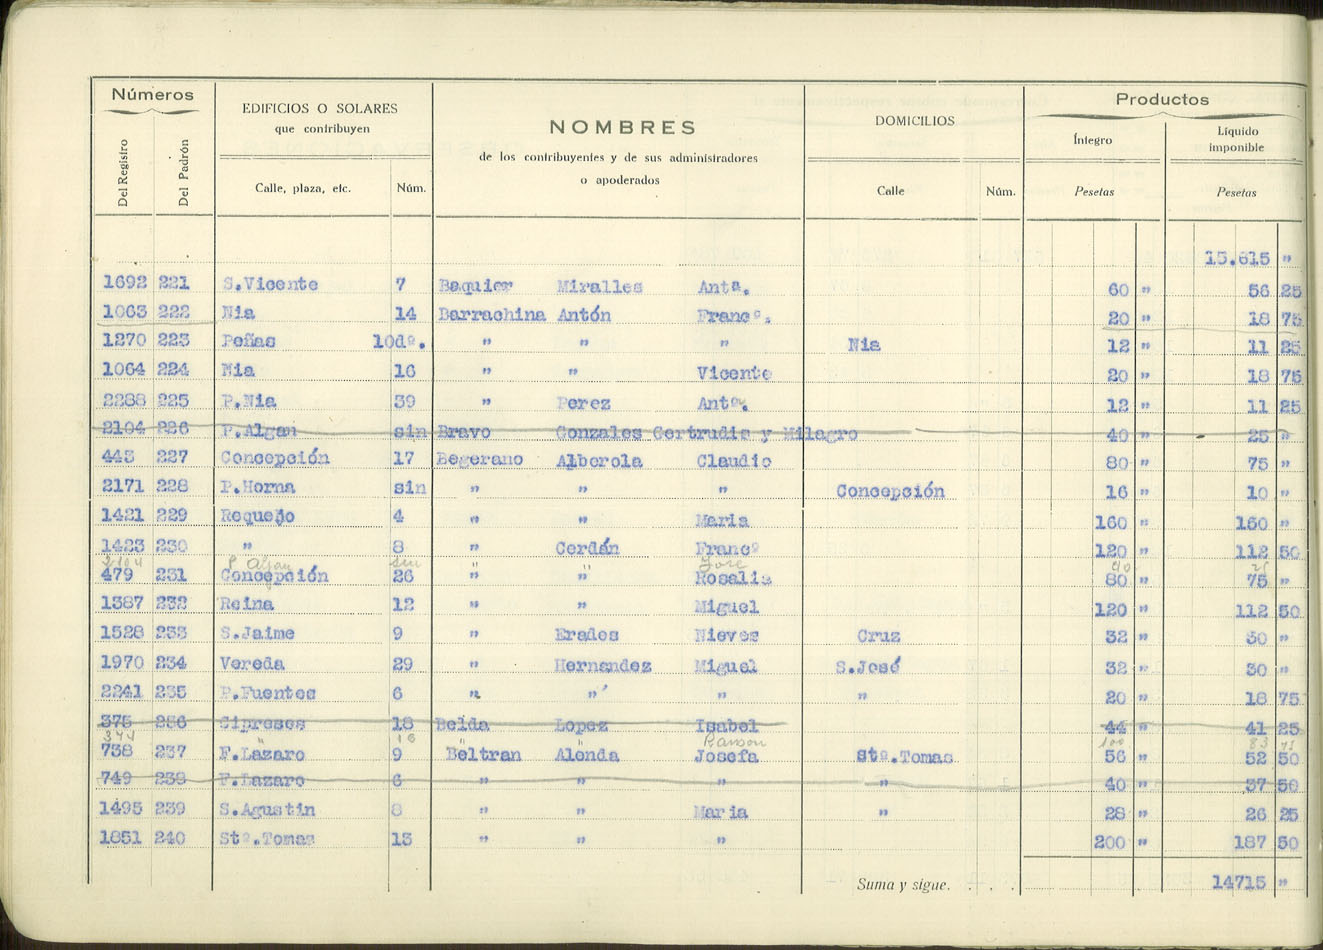 Números
EDIFICIOS O SOLARES
que contribuyen
NOMBRES
de los contribuyentes y de sus administradores
o apoderados
DOMICILIOS
Productos
Íntegro
Líquido
imponible
Del Registro
Del Padrón
Calle, plaza, etc.
Núm.
Calle
Núm.
Pesetas
Pesetas
15.615 "
1692 221 S.Vicente 7 Baquier Miralles Antª. 60 " 56 25
1063 222 Nia 14 Barrachina Antón Francº. 20 " 18 75
1270 223 Peñas 10dº. " " " Nia 12 " 11 25
1064 224 Nia 16 " " Vicente 20 " 18 75
2288 225 P.Nia 39 " Perez Antº. 12 " 11 25
2104 226 P.Algau sin Bravo Gonzales Gertrudis y Milagro 40 " 25 "
445 227 Concepción 17 Begerano Alberola Claudio 80 " 75 "
2171 228 P.Horna sin " " " Concepción 16 " 10 "
1421 229 Requeño 4 " " Maria 160 " 150 "
1423 230 " 8 " Cerdán Francº 120 " 112 50
2104 P Algau sin " " José 40 25
479 231 Concepción 26 Rosalia 80 " 75 "
1387 232 Reina 12 " " Miguel 120 " 112 50
1528 233 S.Jaime 9 " Erades Nieves Cruz 32 " 30 "
1970 234 Vereda 29 " Hernandez Miguel S.José 32 " 30 "
2241 235 P.Fuentes 6 " " " " 20 " 18 75
375 236 Cipreses 18 Belda Lopez Isabel 44 " 41 25
344 " 16 " " 100 83 75
738 237 F.Lázaro 9 Beltran Alenda Josefa Stº.Tomas 56 " 52 50
749 238 F.Lazaro 6 " " " " 40 " 37 50
1495 239 S.Agustin 8 " " Maria " 28 " 26 25
1851 240 Stº.Tomas 13 " " " 200 " 187 50
Suma y sigue. . . . 14715 "